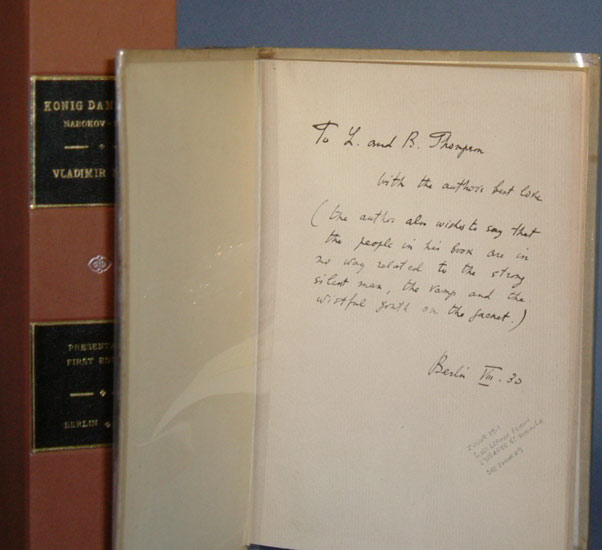 KONIG DAM
NABOKOV-
VLADIMIR
PRESENTA
FIRST ED
BERLIN
To L. and B. Thompson
With the author's best love
(the author also wishes to say that
the people in his book are in
no way related to the strong
silent man, the vamp and the
wistful youth on the jacket.)
Berlin VII. 30